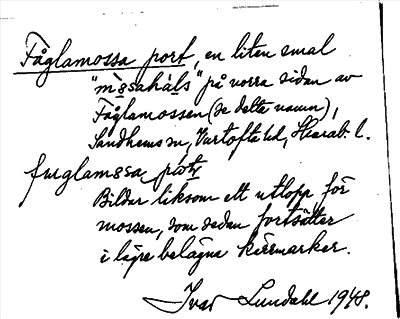 Fåglamossa port, en liten smal
"måsahals" på norra sidan av
Fåglamossen (se detta namn),
Sandhems sn, Vartofta hd, Skarab. l.
fuglamåsa
Bildar liksom ett utlopp för
mossen, som sedan fortsätter
i lägre belägna kärrmarker.
Ivar Lundahl 1948.